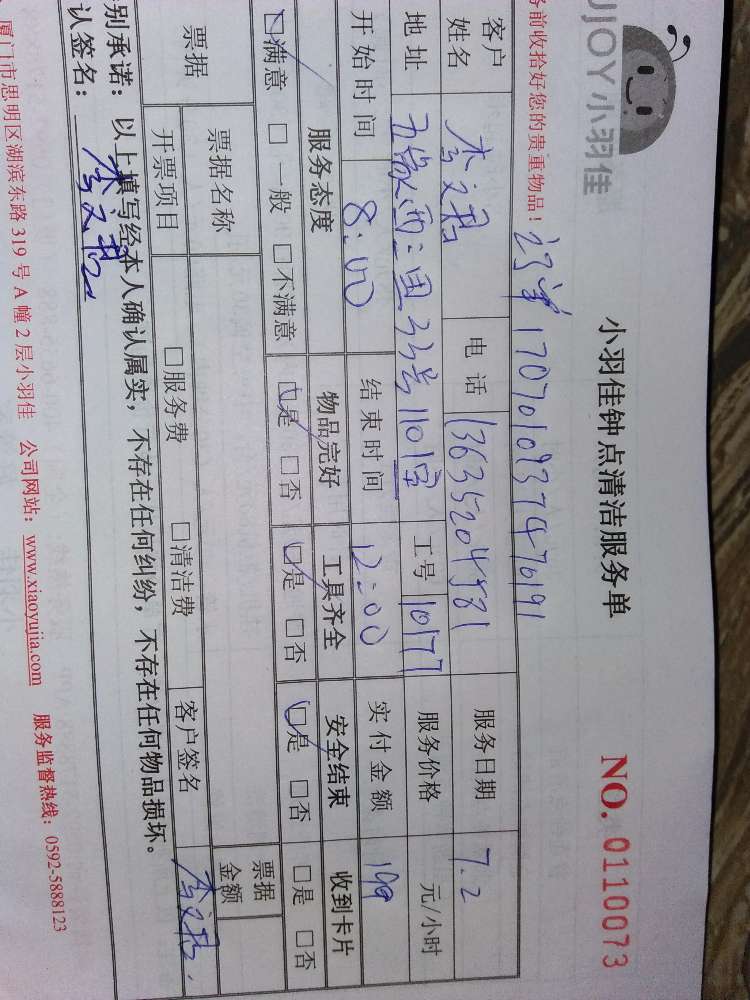 UJOY 小羽佳
小羽佳钟点清洁服务单
NO. 0110073
务前收拾好您的贵重物品！
订单 17070109374770191
客户姓名 李文君 电话 13635204981 服务日期 7.2
地址 西二里33号110室 工号 10177 服务价格 元/小时
开始时间 8:00 结束时间 12:00 实付金额 199
服务态度 物品完好 工具齐全 安全结束 收到卡片
☑满意 □一般 □不满意 ☑是 □否 ☑是 □否 ☑是 □否 □是 □否
票据 票据名称 票据金额
开票项目 □服务费 □清洁费 客户签名 李文君
别承诺：以上填写经本人确认属实，不存在任何纠纷，不存在任何物品损坏。
认签名：李文君
厦门市思明区湖滨东路 319 号 A 幢 2 层小羽佳 公司网站：www.xiaoyujia.com 服务监督热线：0592-5888123